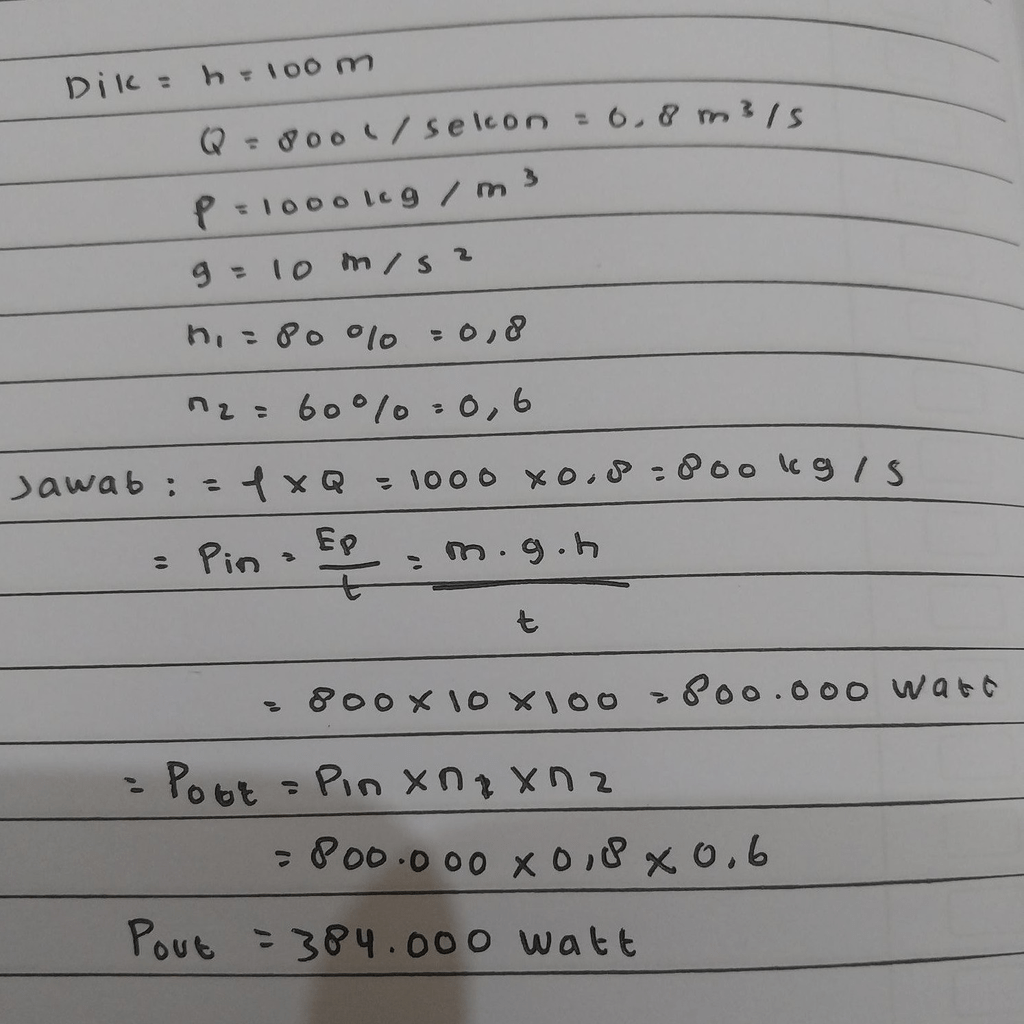 Dik = h = 100 m
Q = 800 L / sekon = 0,8 m³/s
ρ = 1000 kg / m³
g = 10 m/s²
n₁ = 80 % = 0,8
n₂ = 60 % = 0,6
Jawab : = ρ x Q = 1000 x 0,8 = 800 kg / s
= Pin = Ep/t = m . g . h / t
= 800 x 10 x 100 = 800.000 watt
= Pout = Pin x n₁ x n₂
= 800.000 x 0,8 x 0,6
Pout = 384.000 watt